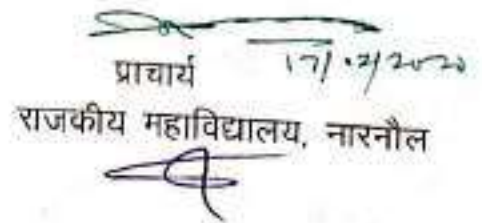 प्राचार्य 17/02/2020
राजकीय महाविद्यालय, नारनौल